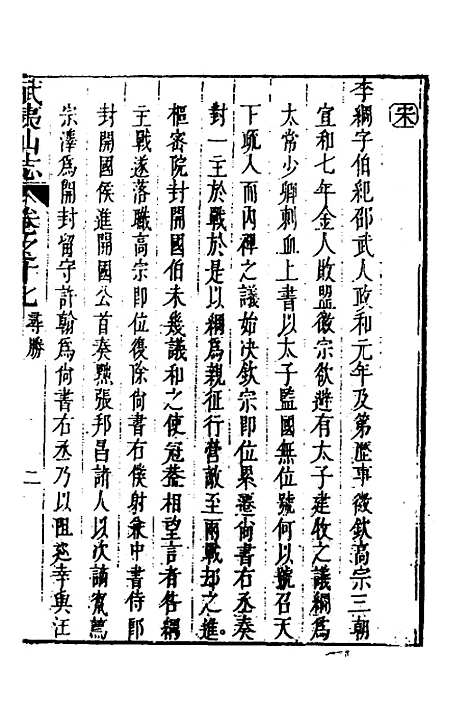 宋
李綱字伯紀邵武人政和元年及第歷事徽欽高宗三朝
宣和七年金人敗盟徽宗欲避有太子建牧之議綱爲
太常少卿刺血上書以太子監國無位號何以號召天
下疏入而內禪之議始决欽宗即位累遷尙書右丞奏
對一主於戰於是以綱爲親征行營敵至兩戰却之進
樞密院封開國伯未幾議和之使冠葢相望言者咎綱
主戰遂落職高宗即位復除尙書右僕射兼中書侍郎
封開國侯進開國公首奏黜張邦昌諸人以次謫竄薦
宗澤爲開封留守許翰爲尙書右丞乃以阻廵幸與汪
武夷山志 卷之十七 尋勝 二